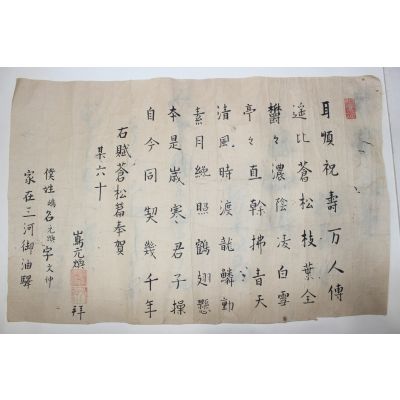 耳順祝壽万人傳
遥比蒼松枝葉全
鬱々濃陰凌白雪
亭々直幹拂青天
清風時渡龍鱗動
素月纔照鶴翅懸
本是歳寒君子操
自今同契幾千年
右賦蒼松篇奉賀
某六十
嶌元煥拝
僕姓嶋名元煥字文仲
家在三河御油驛